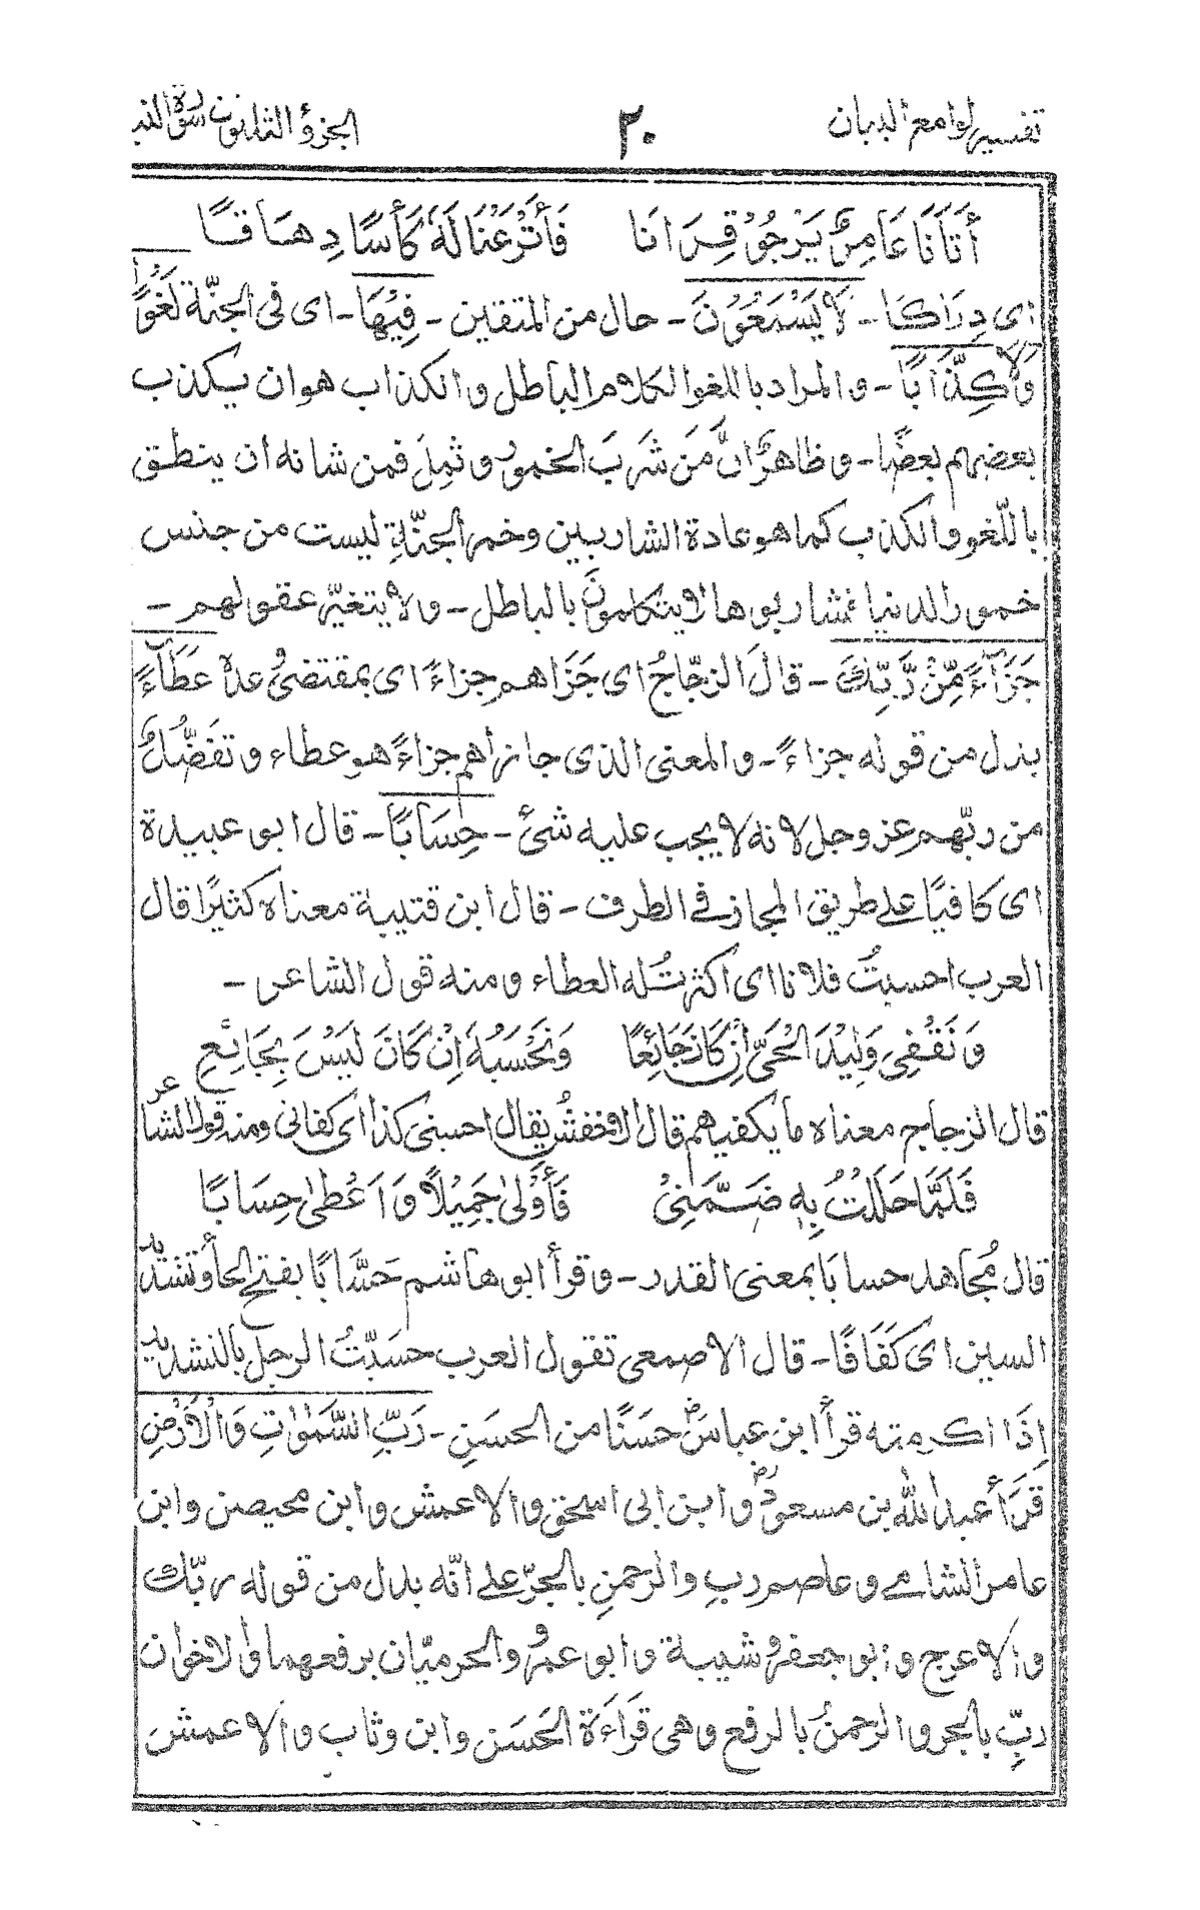 تفسير لوامع البيان ٢٠ الجزؤ الثلثون سورة النبا
أَتَانَا عَامِرٌ يَرْجُوْ قِرَانَا فَأَتْرَعْنَا لَهٗ كَأْسًا دِهَاقًا
اى دِرَاكًا - لَا يَسْمَعُوْنَ - حال من المتقين - فِيْهَا - اى فى الجنّة لَغْوًا
وَّلَا كِذَّابًا - و المراد باللغو الكلام الباطل و الكذاب هو ان يكذب
بعضهم بعضًا - و ظاهرٌ انَّ مَن شَرِبَ الخمورَ و ثَمِلَ فمن شانه ان ينطق
باللّغو و الكذب كما هو عادة الشاربين و خمر الجنّةِ ليست من جنس
خمور الدنيا فشاربوها لا يتكلمونَ بالباطل - ولا يتغيّر عقولهم -
جَزَآءً مِّنْ رَّبِّكَ - قالَ الزجّاجُ اى جَزَاهم جزاءً اى بمقتضىٰ عدهٖ عَطَآءً
بدل من قوله جزاءً - و المعنى الذى جازاهم جزاءً هو عطاء و تفضّلٌ
من ربّهم عز و جل لانه لا يجب عليه شئ - حِسَابًا - قال ابو عبيدة
اى كافيًا على طريق المجاز فى الطرف - قال ابن قتيبة معناه كثيرًا قال
العرب احسبتُ فلانا اى اكثرتُ له العطاء و منه قول الشاعر -
وَنَقْفِى وَلِيْدَ الْحَىِّ اِنْ كَانَ جَائِعًا وَنُحْسِبُهٗ اِنْ كَانَ لَيْسَ بِجَائِعِ
قال الزجاج معناه ما يكفيهم قال الاخفش يقال احسبنى كذا اى كفانى ومنه قول الشاعر
فَلَمَّا حَلَلْتُ بِهٖ ضَمَّنِىْ فَأَوْلىٰ جَمِيْلًا وَ اَعْطىٰ حِسَابًا
قال مُجاهد حسابًا بمعنى القدر - و قرأ ابو هاشم حَسَّابًا بفتح الحاء و تشديد
السين اى كَفَافًا - قال الاصمعى تقول العرب حسّبْتُ الرجل بالتشديد
اِذَا اكرمته قرأ ابن عباس حَسَنًا من الحسَنِ - رَبِّ السَّمٰوٰتِ وَالْاَرْضِ
قَرَأَ عبد الله بن مسعود و ابن ابى اسحٰق و الاعمش و ابن محيصن و ابن
عامر الشامى و عاصم ربِ و الرحمنِ بالجرِّ على انّه بدل من قوله ربّك
و الاعرج و ابو جعفر و شيبة و ابو عمرو و الحرميّان برفعهما و الاخوان
ربِّ بالجر و الرحمنُ بالرفع و هى قَرَاءَة الحَسَن و ابن وثاب و الاعمش